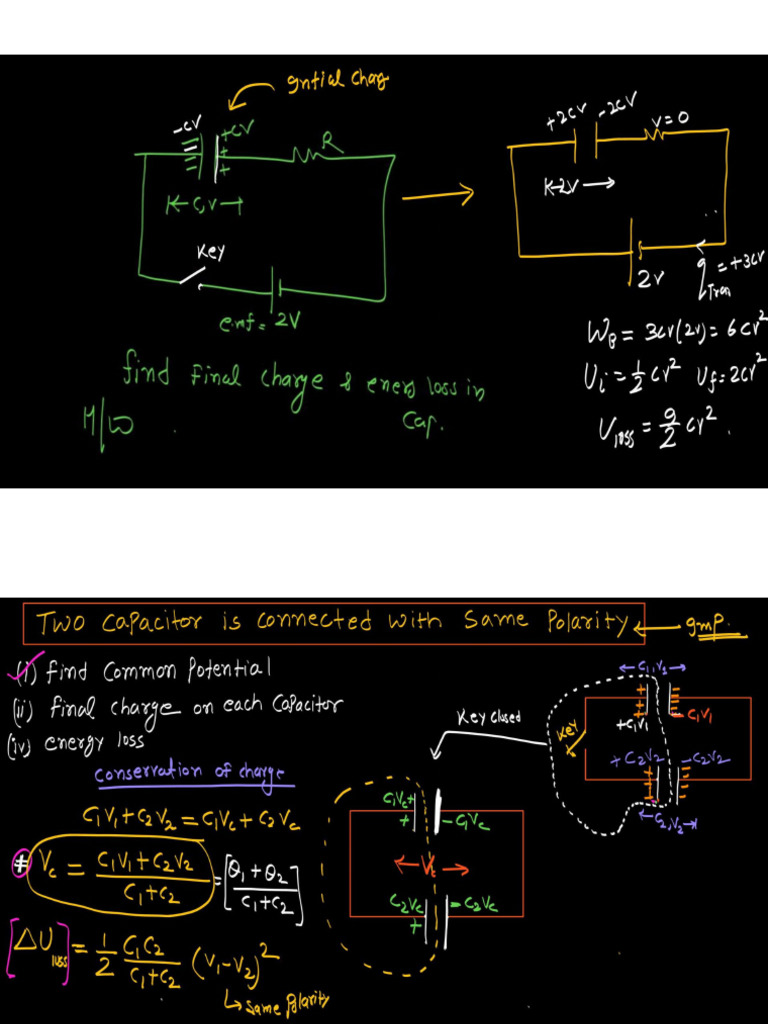 gntial charg
-cv
+cv
+
+
R
K c,v
Key
emf = 2V
find Final charge & energ loss in
H/W
Cap.
+2cv
-2cv
v=0
K-2V
2v
q = +3cv
Tran
W_B = 3cv(2v) = 6cv²
U_i = 1/2 cv² U_f = 2cv²
U_loss = 9/2 cv².
Two capacitor is connected with same Polarity
gmp.
(i) find common Potential
(ii) final charge on each capacitor
(iv) energy loss
conservation of charge
C₁V₁ + C₂V₂ = C₁Vc + C₂Vc
# Vc = (C₁V₁ + C₂V₂)/(C₁ + C₂) = [(Q₁ + Q₂)/(C₁ + C₂)]
[ΔU loss] = 1/2 C₁C₂/(C₁+C₂) (V₁-V₂)²
same Polarity
Key closed
C₁Vc +
+
-C₁Vc
Vc
C₂Vc
= C₂Vc
+
C₁, V₁
+C₁V₁
-C₁V₁
Key
+C₂V₂
-C₂V₂
C₂, V₂